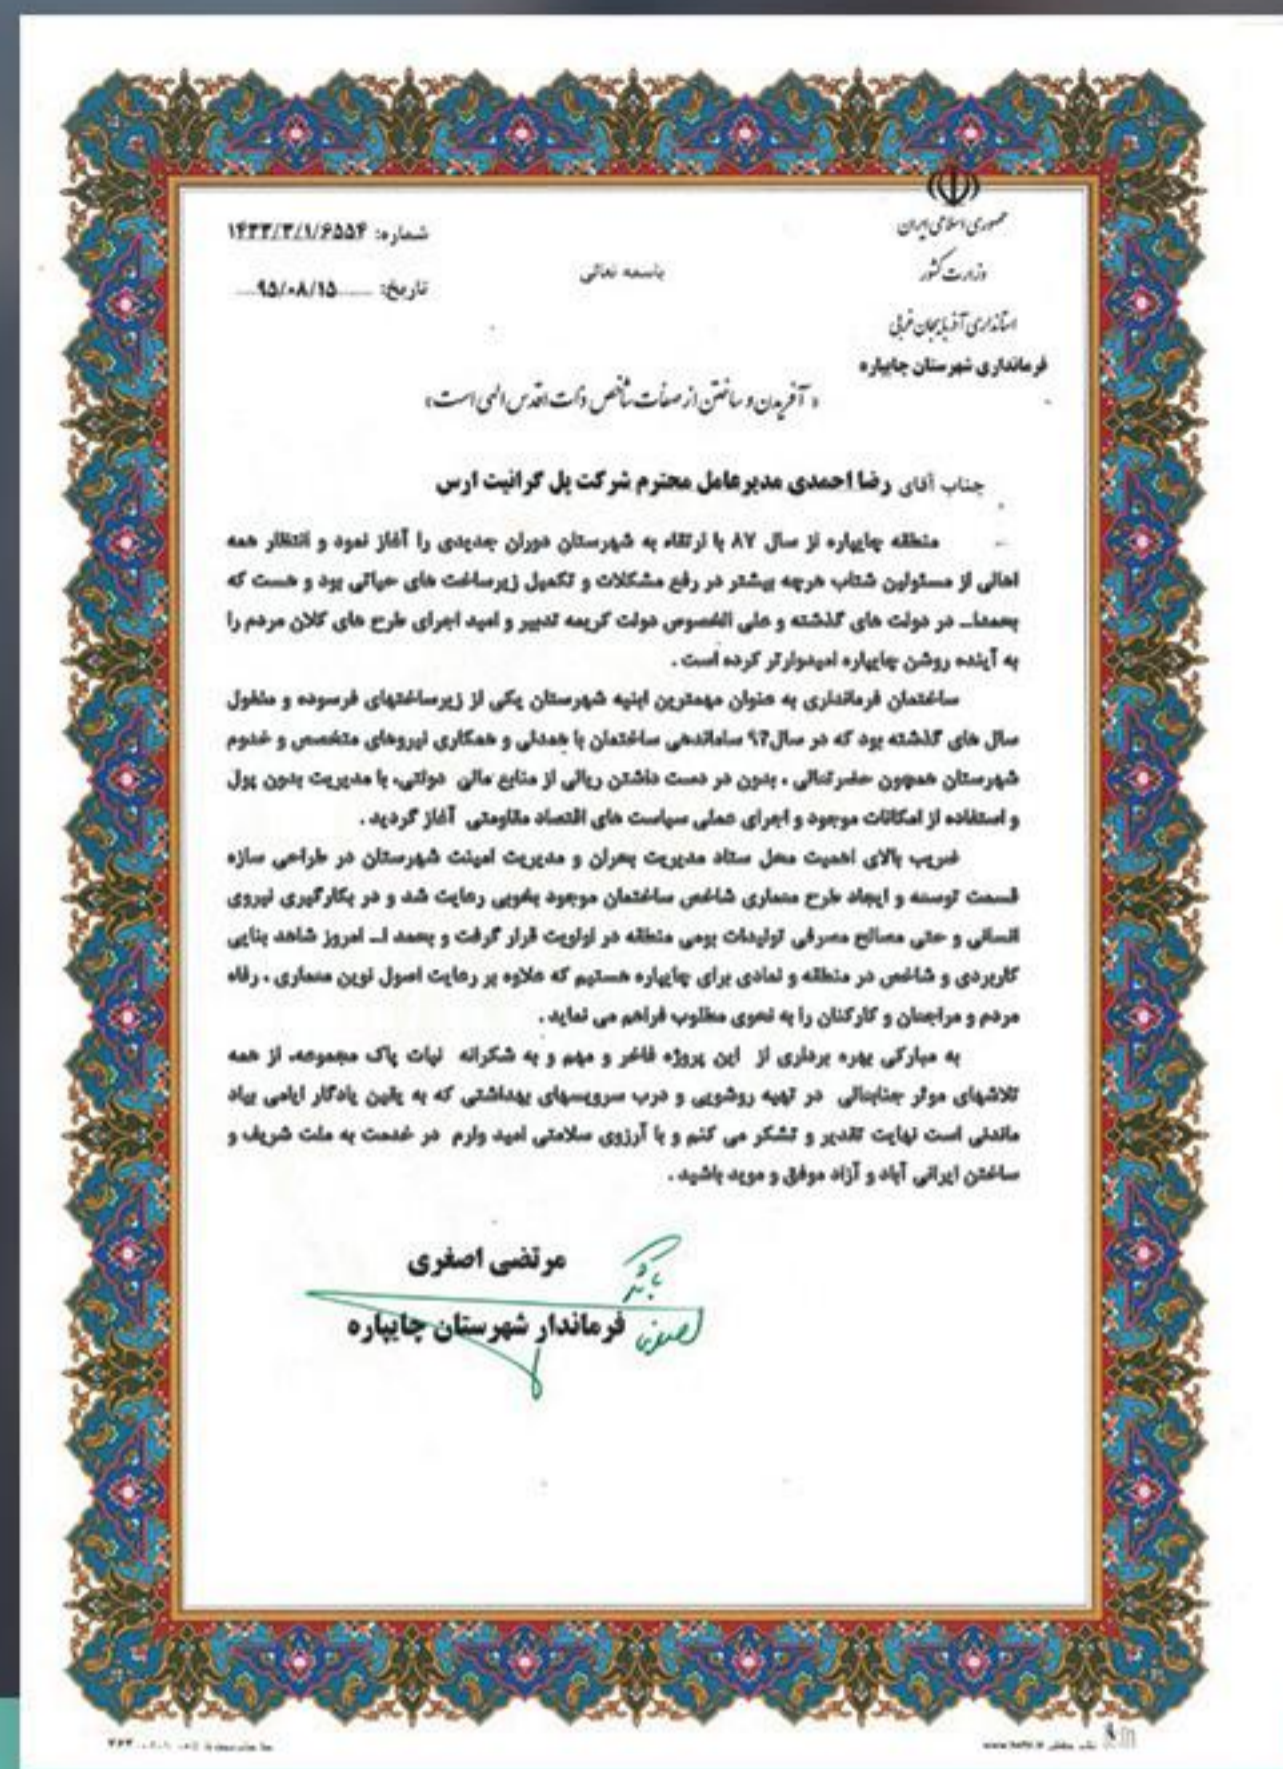 جمهوری اسلامی ایران
وزارت کشور
استانداری آذربایجان غربی
فرمانداری شهرستان چایپاره
شماره: ۱۴۳۳/۳/۱/۶۵۵۴
تاریخ: ۹۵/۰۸/۱۵
باسمه تعالی
« آفریدن و ساختن از صفات شاخص ذات اقدس الهی است »
جناب آقای رضا احمدی مدیرعامل محترم شرکت پل گرانیت ارس
منطقه چایپاره از سال ۸۷ با ارتقاء به شهرستان دوران جدیدی را آغاز نمود و انتظار همه
اهالی از مسئولین شتاب هرچه بیشتر در رفع مشکلات و تکمیل زیرساخت های حیاتی بود و هست که
بحمدا... در دولت های گذشته و علی الخصوص دولت کریمه تدبیر و امید اجرای طرح های کلان مردم را
به آینده روشن چایپاره امیدوارتر کرده است .
ساختمان فرمانداری به عنوان مهمترین ابنیه شهرستان یکی از زیرساختهای فرسوده و مغفول
سال های گذشته بود که در سال ساماندهی ساختمان با همدلی و همکاری نیروهای متخصص و خدوم
شهرستان همچون حضرتعالی ، بدون در دست داشتن ریالی از منابع مالی دولتی، با مدیریت بدون پول
و استفاده از امکانات موجود و اجرای عملی سیاست های اقتصاد مقاومتی آغاز گردید .
ضریب بالای اهمیت محل ستاد مدیریت بحران و مدیریت امینت شهرستان در طراحی سازه
قسمت توسعه و ایجاد طرح معماری شاخص ساختمان موجود بخوبی رعایت شد و در بکارگیری نیروی
انسانی و حتی مصالح مصرفی تولیدات بومی منطقه در اولویت قرار گرفت و بحمد ا... امروز شاهد بنایی
کاربردی و شاخص در منطقه و نمادی برای چایپاره هستیم که علاوه بر رعایت اصول نوین معماری ، رفاه
مردم و مراجعان و کارکنان را به نحوی مطلوب فراهم می نماید .
به مبارکی بهره برداری از این پروژه فاخر و مهم و به شکرانه نیات پاک مجموعه، از همه
تلاشهای موثر جنابعالی در تهیه روشویی و درب سرویسهای بهداشتی که به یقین یادگار ایامی بیاد
ماندنی است نهایت تقدیر و تشکر می کنم و با آرزوی سلامتی امید وارم در خدمت به ملت شریف و
ساختن ایرانی آباد و آزاد موفق و موید باشید .
مرتضی اصغری
فرماندار شهرستان چایپاره